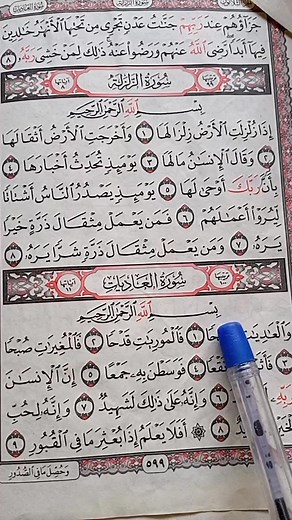 جَزَآؤُهُمْ عِندَ رَبِّهِمْ جَنَّٰتُ عَدْنٍ تَجْرِي مِن تَحْتِهَا ٱلْأَنْهَٰرُ خَٰلِدِينَ
فِيهَآ أَبَدًا رَّضِيَ ٱللَّهُ عَنْهُمْ وَرَضُوا۟ عَنْهُ ذَٰلِكَ لِمَنْ خَشِيَ رَبَّهُۥ ٨
سُورَةُ الزَّلْزَلَةِ
بِسْمِ ٱللَّهِ ٱلرَّحْمَٰنِ ٱلرَّحِيمِ
إِذَا زُلْزِلَتِ ٱلْأَرْضُ زِلْزَالَهَا ١ وَأَخْرَجَتِ ٱلْأَرْضُ أَثْقَالَهَا
٢ وَقَالَ ٱلْإِنسَٰنُ مَا لَهَا ٣ يَوْمَئِذٍ تُحَدِّثُ أَخْبَارَهَا ٤
بِأَنَّ رَبَّكَ أَوْحَىٰ لَهَا ٥ يَوْمَئِذٍ يَصْدُرُ ٱلنَّاسُ أَشْتَاتًا
لِّيُرَوْا۟ أَعْمَٰلَهُمْ ٦ فَمَن يَعْمَلْ مِثْقَالَ ذَرَّةٍ خَيْرًا
يَرَهُۥ ٧ وَمَن يَعْمَلْ مِثْقَالَ ذَرَّةٍ شَرًّا يَرَهُۥ ٨
سُورَةُ العَادِيَاتِ
بِسْمِ ٱللَّهِ ٱلرَّحْمَٰنِ ٱلرَّحِيمِ
وَٱلْعَٰدِيَٰتِ ١ فَٱلْمُورِيَٰتِ قَدْحًا ٢ فَٱلْمُغِيرَٰتِ صُبْحًا
٣ ٤ فَوَسَطْنَ بِهِۦ جَمْعًا ٥ إِنَّ ٱلْإِنسَٰنَ
٦ وَإِنَّهُۥ عَلَىٰ ذَٰلِكَ لَشَهِيدٌ ٧ وَإِنَّهُۥ لِحُبِّ
٨ ۞ أَفَلَا يَعْلَمُ إِذَا بُعْثِرَ مَا فِي ٱلْقُبُورِ ٩
وَحُصِّلَ مَا فِي الصُّدُورِ
٥٩٩